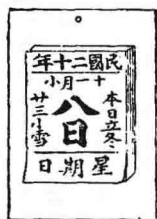 民國二十年
十一月小
本日立冬
八日
廿三小雪
星期日